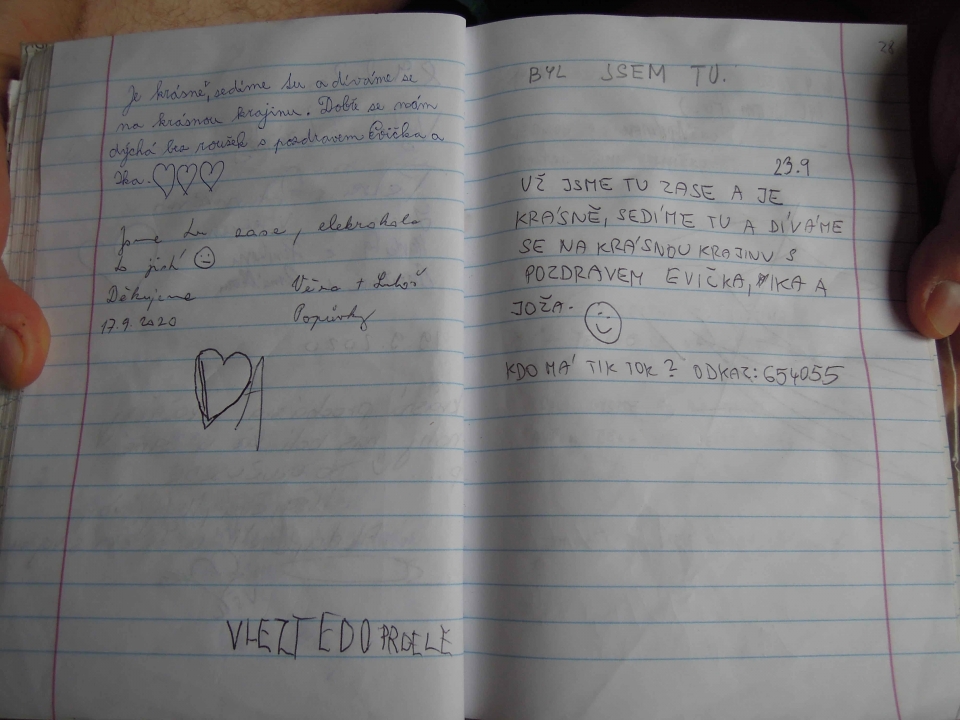 Je krásně, sedíme tu a díváme se
na krásnou krajinu. Dobře se nám
dýchá bez roušek s pozdravem Evička a
Ika.
Jsme tu zase, elektrokola
to jistí
Děkujeme Věra + Luboš
17.9.2020 Popůvky
A
VLEZTE DO PRDELE
28
BYL JSEM TU.
23.9
UŽ JSME TU ZASE A JE
KRÁSNĚ, SEDÍME TU A DÍVÁME
SE NA KRÁSNOU KRAJINU S
POZDRAVEM EVIČKA, IKA A
JOŽA.
KDO MÁ TIK TOK? ODKAZ: 654055